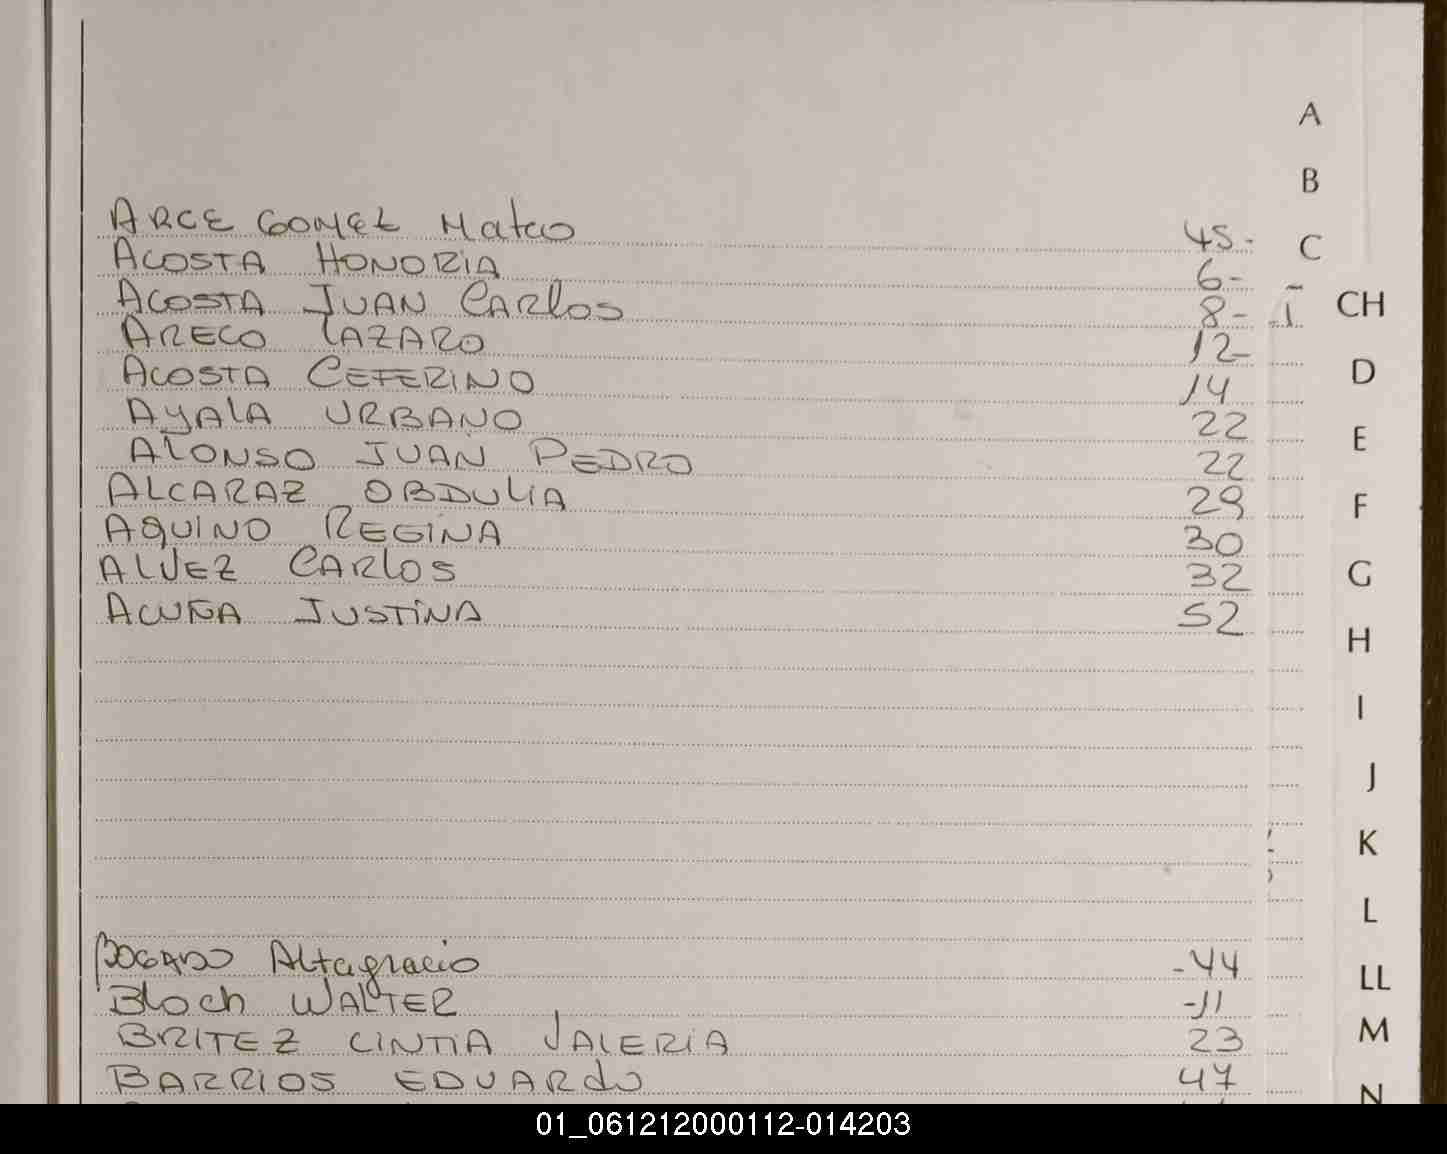 A
B
ARCE GOMEZ Mateo 45-
C
ACOSTA HONORIA 6-
ACOSTA JUAN CARlos 8-
CH
ARECO LAZARO 12-
D
ACOSTA CEFERINO 14
AYALA URBANO 22
E
ALONSO JUAN PEDRO 22
ALCARAZ OBDULIA 29
F
AQUINO REGINA 30
ALVEZ CARLOS 32
G
ACUÑA JUSTINA 52
H
I
J
K
L
BOGADO Altagracio -44
LL
Bloch WALTER -11
M
BRITEZ CINTIA VALERIA 23
BARRIOS EDUARdo 47
N
01_061212000112-014203